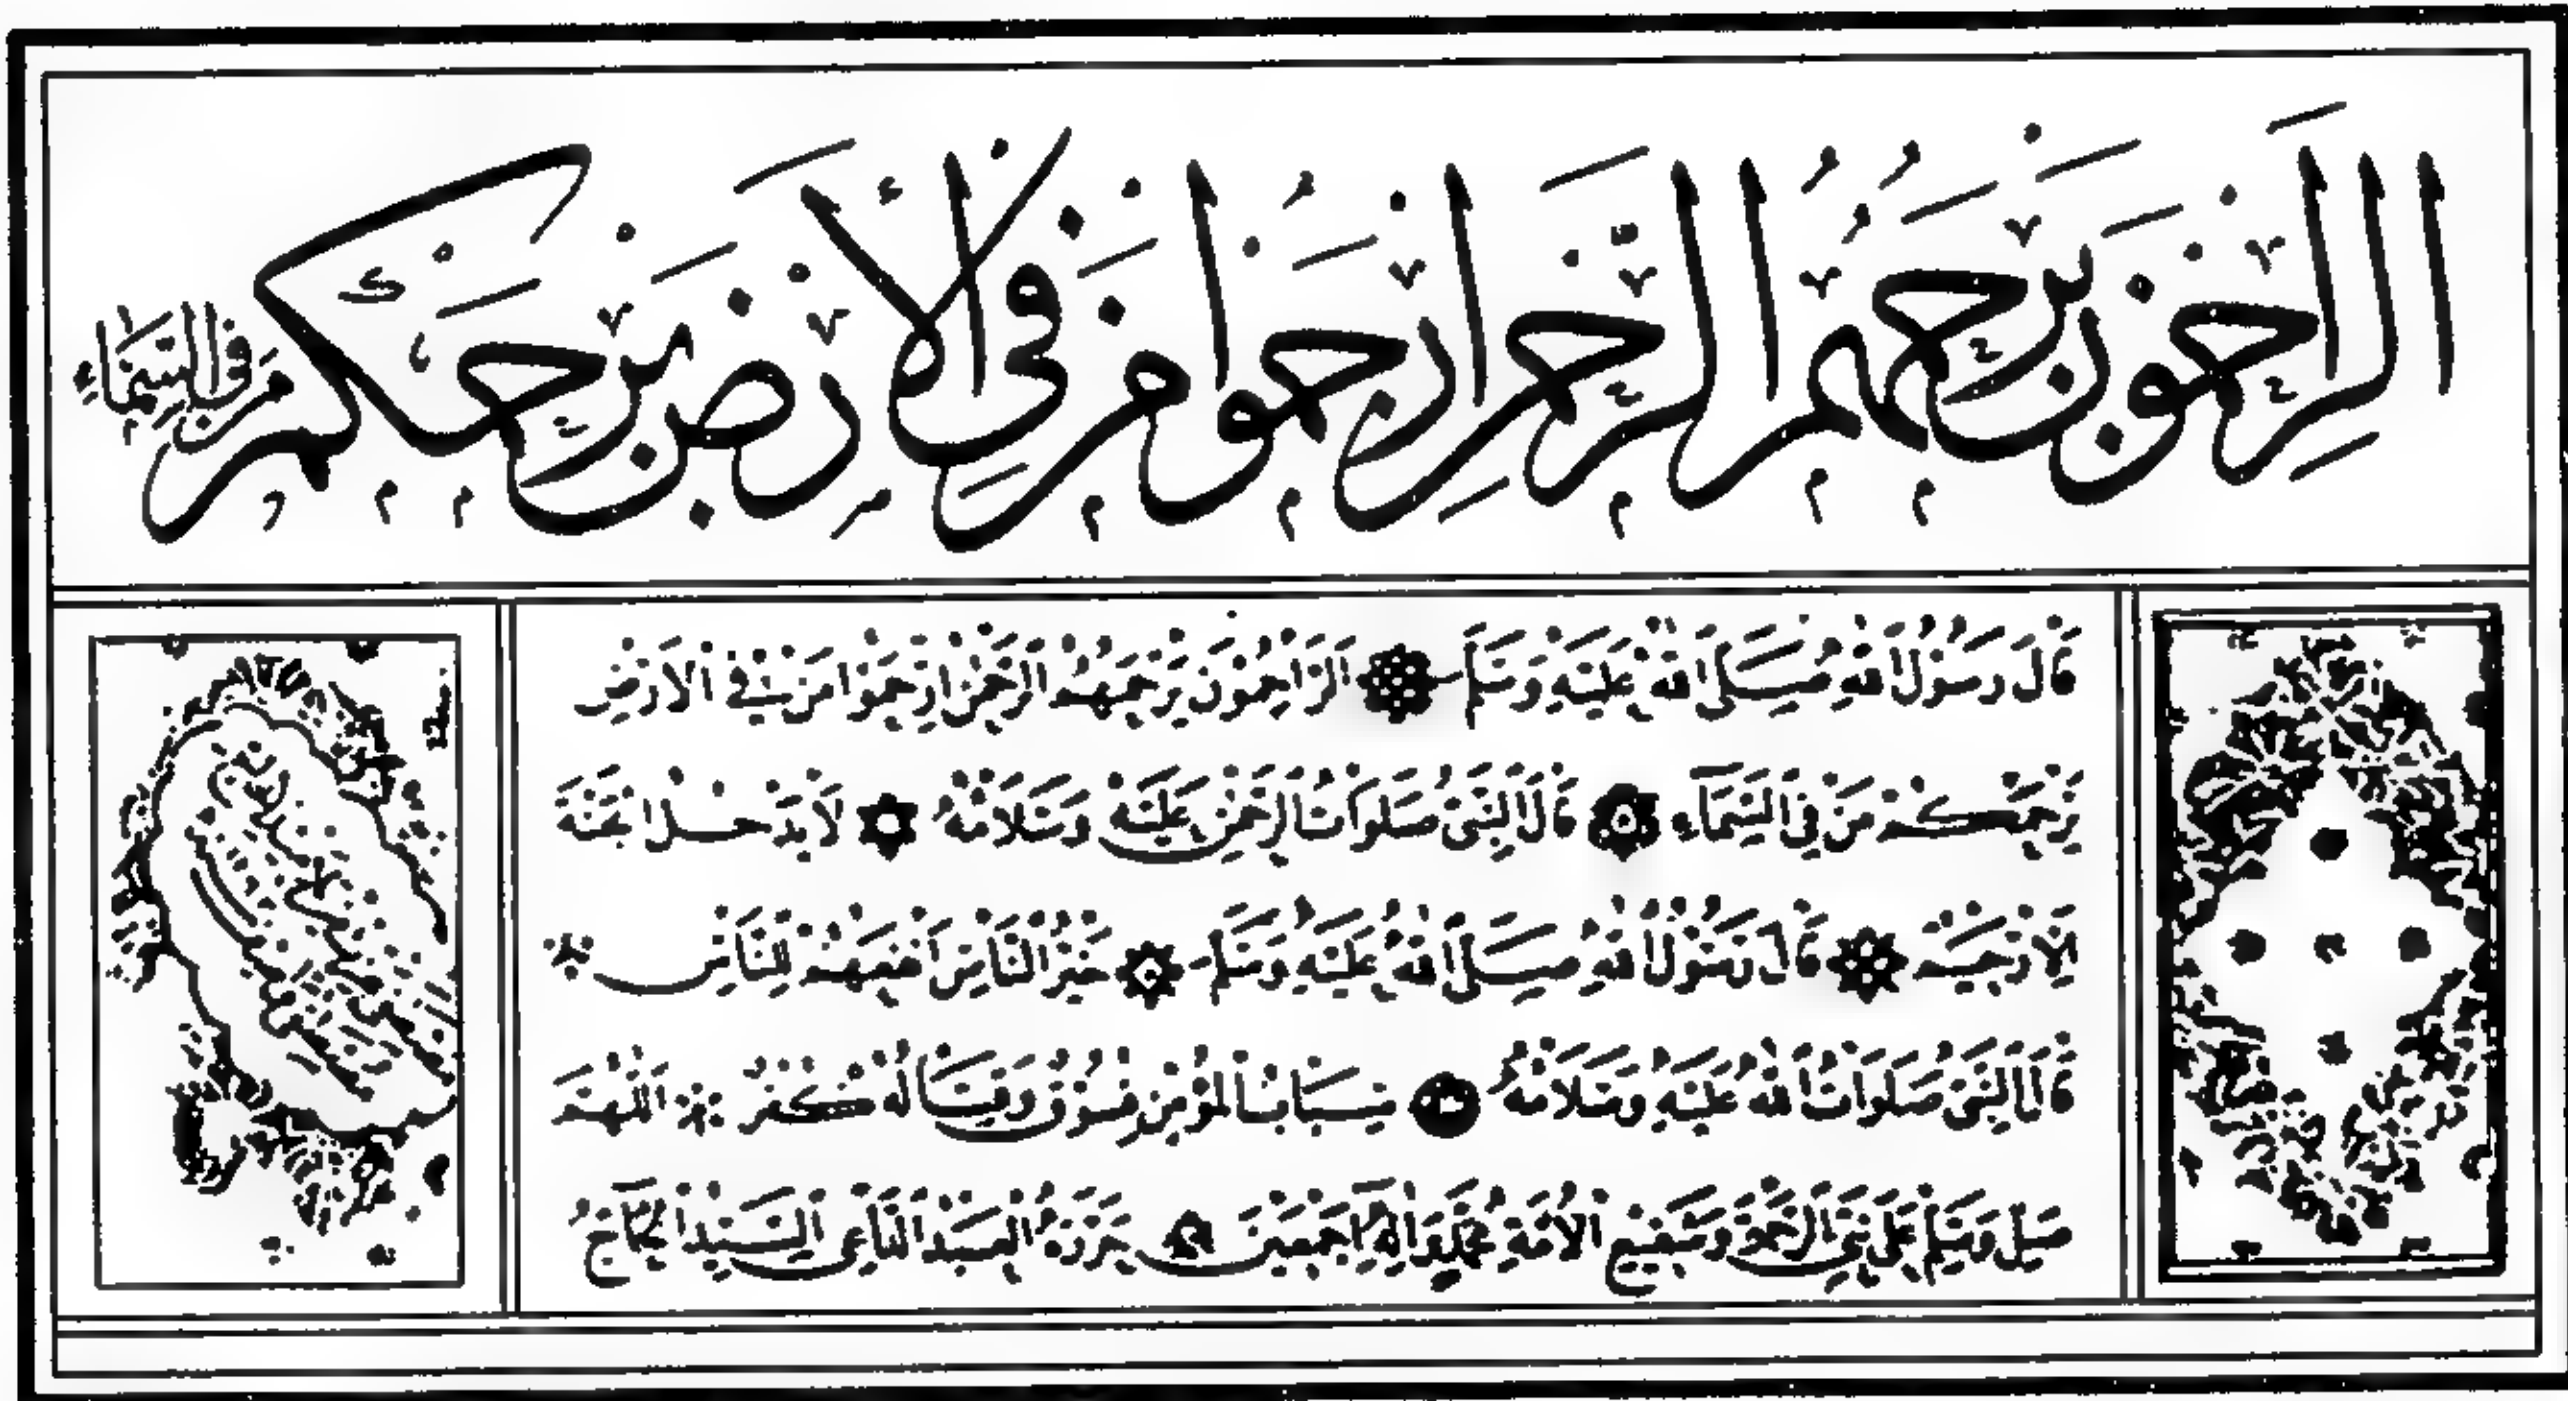 الرَّاحِمُونَ يَرْحَمُهُمُ الرَّحْمٰنُ ارْحَمُوا مَنْ فِي الْأَرْضِ يَرْحَمْكُمْ مَنْ فِي السَّمَاءِ
قَالَ رَسُولُ اللهِ صَلَّى اللهُ عَلَيْهِ وَسَلَّمَ الرَّاحِمُونَ يَرْحَمُهُمُ الرَّحْمٰنُ ارْحَمُوا مَنْ فِي الْأَرْضِ
يَرْحَمْكُمْ مَنْ فِي السَّمَاءِ قَالَ النَّبِيُّ صَلَوَاتُ الرَّحْمٰنِ عَلَيْهِ وَسَلَامُهُ لَا يَدْخُلُ الْجَنَّةَ
إِلَّا رَحِيمٌ قَالَ رَسُولُ اللهِ صَلَّى اللهُ عَلَيْهِ وَسَلَّمَ خَيْرُ النَّاسِ أَنْفَعُهُمْ لِلنَّاسِ
قَالَ النَّبِيُّ صَلَوَاتُ اللهِ عَلَيْهِ وَسَلَامُهُ سِبَابُ الْمُؤْمِنِ فُسُوقٌ وَقِتَالُهُ كُفْرٌ اللّٰهُمَّ
صَلِّ وَسَلِّمْ عَلَى نَبِيِّ الرَّحْمَةِ وَشَفِيعِ الْأُمَّةِ مُحَمَّدٍ وَآلِهِ أَجْمَعِينَ حَرَّرَهُ الْعَبْدُ الدَّاعِي السَّيِّدُ الْحَاجُّ